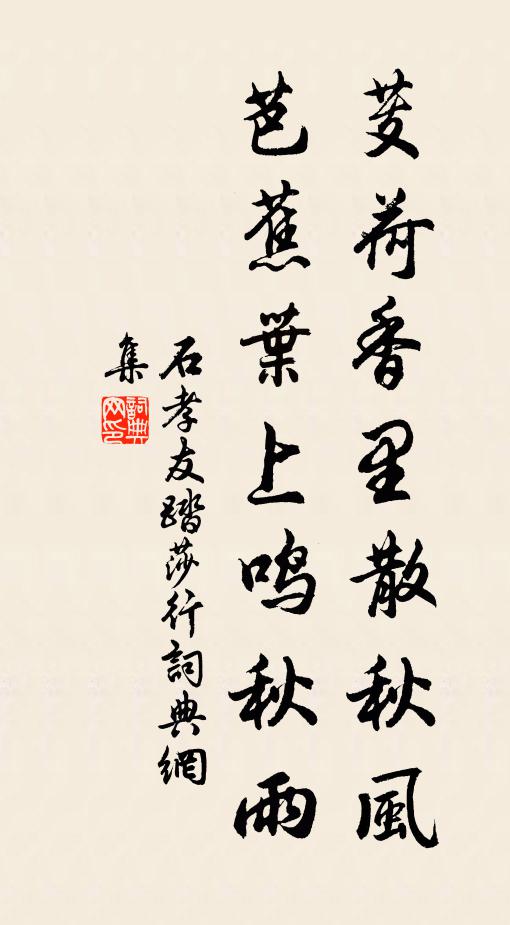 芰荷香里散秋風
芭蕉葉上鳴秋雨
石孝友踏莎行詞典網
集
詞典
网印